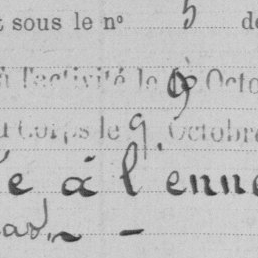 t sous le nº 5 de
à l'activité le 9 Octo
u Corps le 9 Octobre
e à l'enne
as,~ -